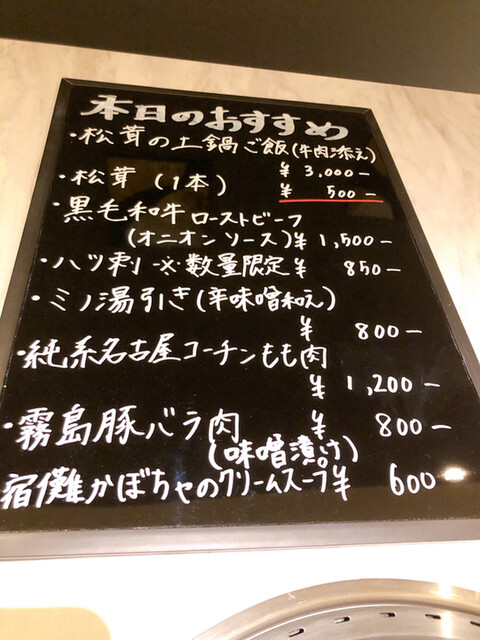 本日のおすすめ
・松茸の土鍋ご飯(牛肉添え)
¥ 3,000-
・松茸(1本) ¥ 500-
・黒毛和牛ローストビーフ
(オニオンソース)¥ 1,500-
・ハツ刺 ※数量限定 ¥ 850-
・ミノ湯引き(辛味噌和え)
¥ 800-
・純系名古屋コーチンもも肉
¥ 1,200-
・霧島豚バラ肉 ¥ 800-
(味噌漬け)
宿儺かぼちゃのクリームスープ¥ 600-